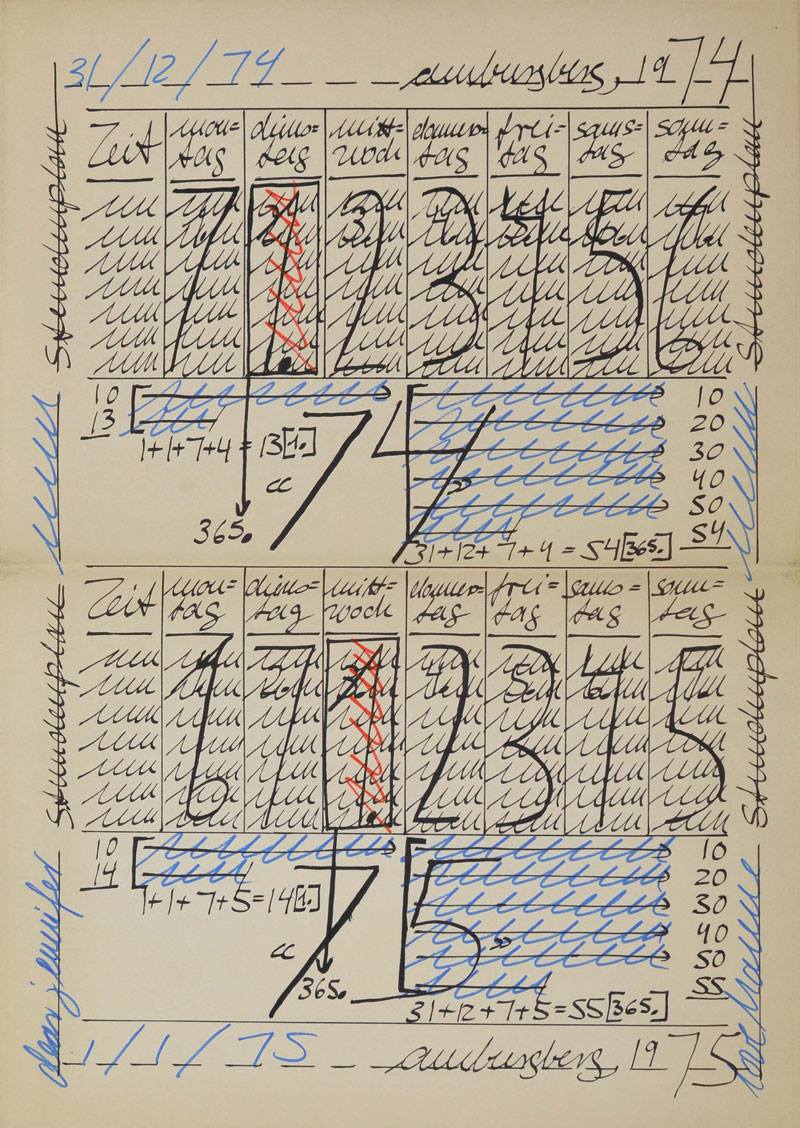 31/12/74 amburgberg, 1974
Stundenplan
Stundenplan
Zeit mon=tag diens=tag mitt=woch donners=tag frei=tag sams=tag sonn=tag
7 1. 2 3 4 5 6
10
13
1+1+7+4=13[1.]
« 74 »
365.
10
20
30
40
50
54
31+12+7+4=54[365.]
Zeit mon=tag diens=tag mitt=woch donners=tag frei=tag sams=tag sonn=tag
6 7 1. 2 3 4 5
Stundenplan
Stundenplan
10
14
1+1+7+5=14[1.]
« 75 »
365.
10
20
30
40
50
55
31+12+7+5=55[365.]
dear jennifer
love hanne
1/1/75 amburgberg, 1975